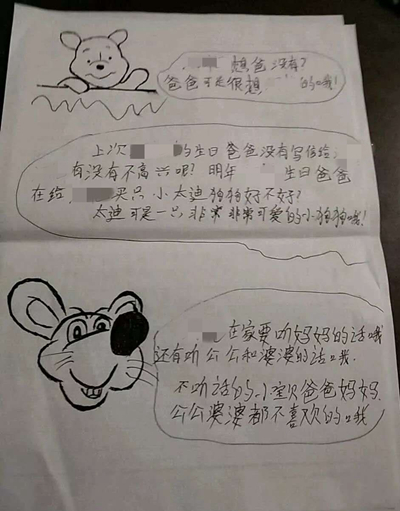 想爸没有?
爸爸可是很想 的哦!
上次 的生日爸爸没有写信给
有没有不高兴呢? 明年 生日爸爸
在给 买只小太迪狗狗好不好?
太迪可是一只非常非常可爱的小狗狗哦!
在家要听妈妈的话哦
还有听公公和婆婆的话哦.
不听话的小宝贝爸爸妈妈.
公公婆婆都不喜欢的哦